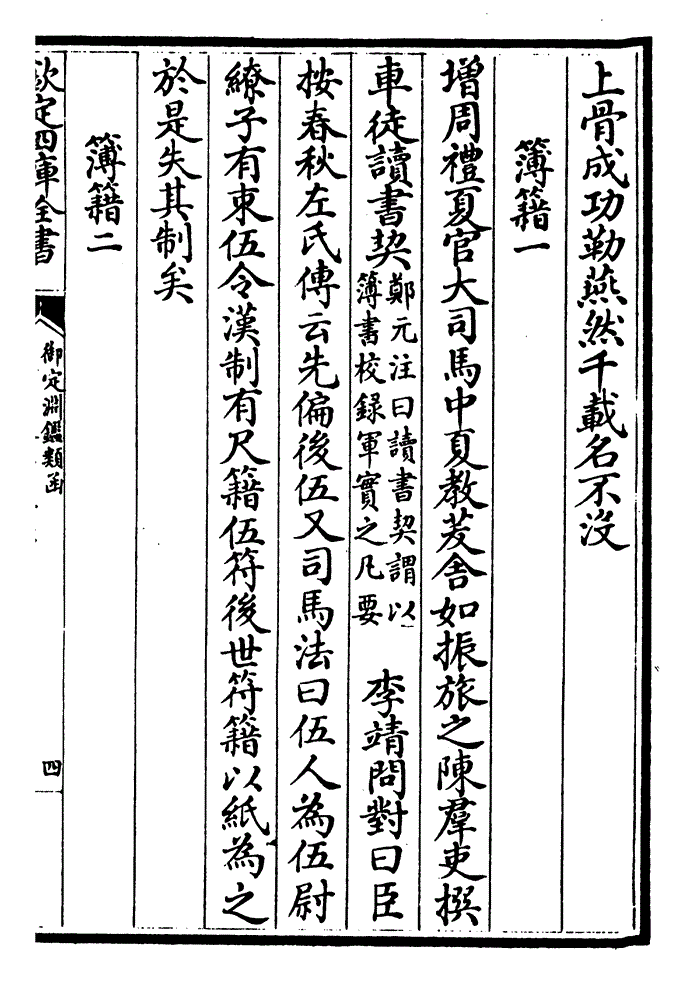 上骨成功勒燕然千載名不没
簿籍一
增周禮夏官大司馬中夏教茇舍如振旅之陳羣吏撰
車徒讀書契鄭元注曰讀書契謂以簿書校錄軍實之凡要 李靖問對曰臣
按春秋左氏傳云先偏後伍又司馬法曰伍人為伍尉
繚子有束伍令漢制有尺籍伍符後世符籍以紙為之
於是失其制矣
簿籍二
欽定四庫全書
御定淵鑑類函
四